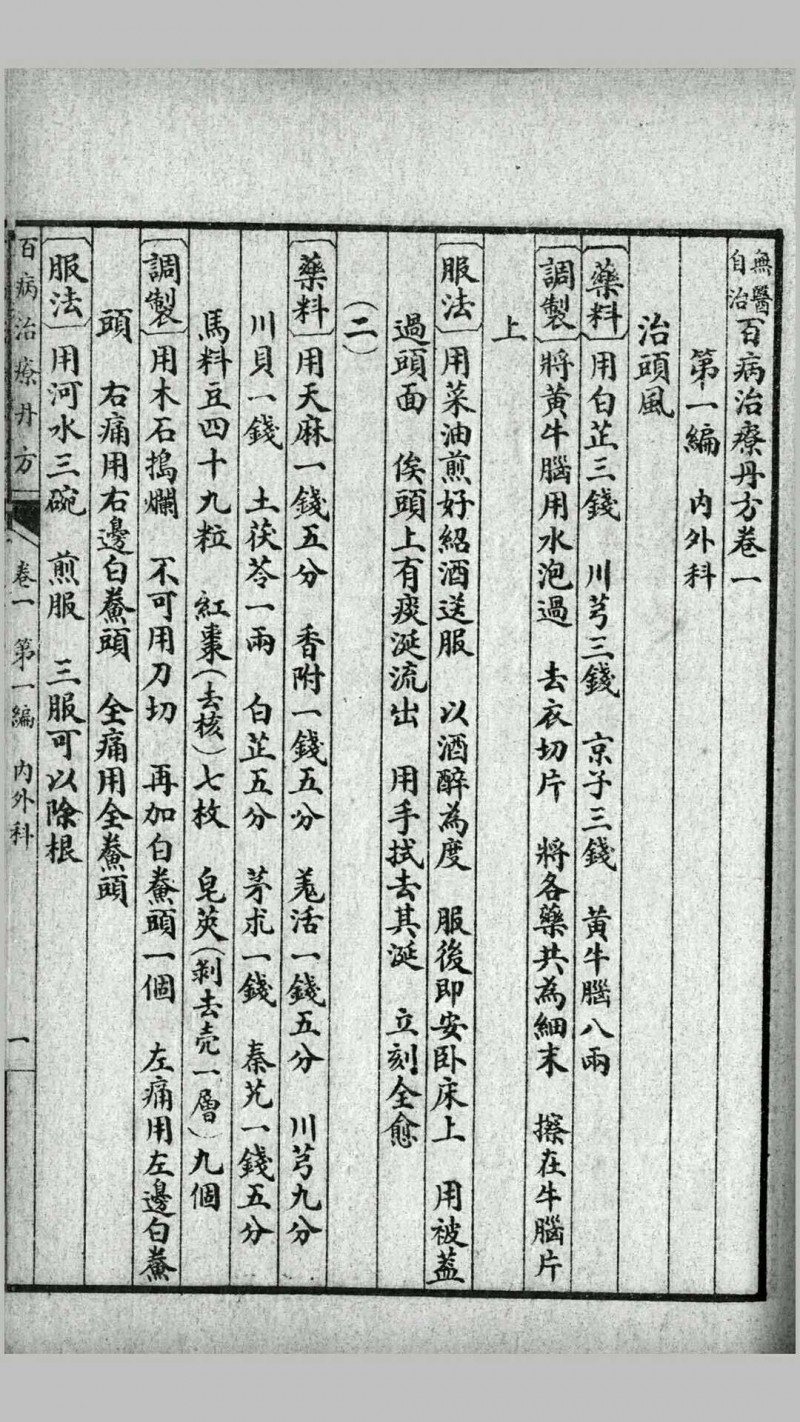 無醫自治百病治療丹方卷一
第一編　內外科
治頭風
〔藥料〕用白芷三錢　川芎三錢　京子三錢　黃牛腦八兩
〔調製〕將黃牛腦用水泡過　去衣切片　將各藥共為細末　搽在牛腦片
上
〔服法〕用菜油煎好紹酒送服　以酒醉為度　服後即安卧床上　用被蓋
過頭面　俟頭上有痰涎流出　用手拭去其涎　立刻全愈
（二）
〔藥料〕用天麻一錢五分　香附一錢五分　羗活一錢五分　川芎九分
川貝一錢　土茯苓一兩　白芷五分　茅朮一錢　秦艽一錢五分
馬料豆四十九粒　紅棗（去核）七枚　皂莢（剝去壳一層）九個
〔調製〕用木石搗爛　不可用刀切　再加白鯗頭一個　左痛用左邊白鯗
頭　右痛用右邊白鯗頭　全痛用全鯗頭
〔服法〕用河水三碗　煎服　三服可以除根
百病治療丹方　卷一　第一編　內外科　一